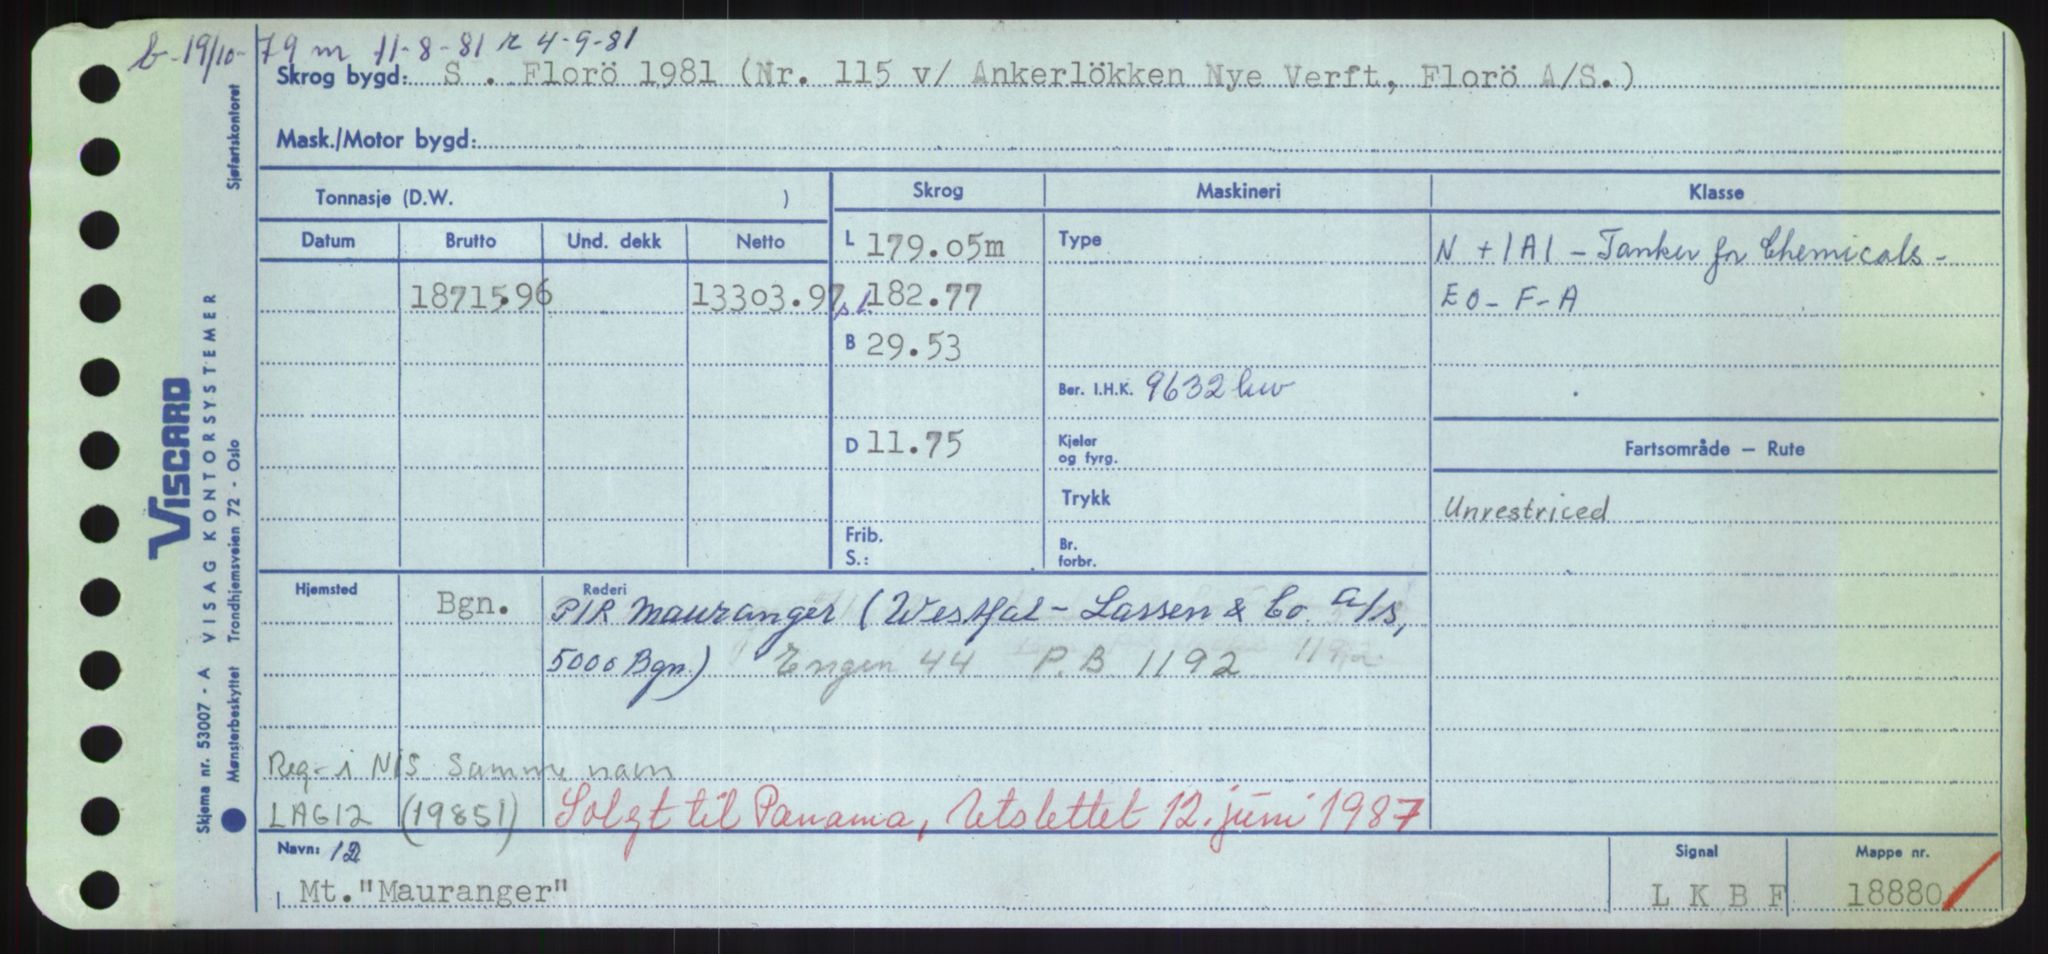 b-19/10-79 m 11-8-81 r 4-9-81
Skrog bygd: S. Florö 1981 (Nr. 115 v/ Ankerlökken Nye Verft, Florö A/S.)
Mask./Motor bygd:
Tonnasje (D.W. )
Skrog
Maskineri
Klasse
Datum
Brutto
Und. dekk
Netto
L 179.05m
Type
N + 1A1 - Tanker for Chemicals -
18715.96
13303.97
p.l. 182.77
E0 - F - A
B 29.53
Ber. I.H.K. 9632 kw
D 11.75
Kjeler og fyrg.
Fartsområde — Rute
Trykk
Unrestriced
Frib.
S.:
Br. forbr.
Hjemsted
Bgn.
Rederi
P/R Mauranger (Westfal-Larsen & Co. A/S,
5000 Bgn.) Engen 44 P.B 1192
Reg- i NIS samme navn
LAGI2 (19851)
Solgt til Panama, Utslettet 12. juni 1987
Navn: 12
Mt. "Mauranger"
Signal
L K B F
Mappe nr.
18880
Sjøfartskontoret
VISCARD
VISAG KONTORSYSTEMER
Trondhjemsveien 72 - Oslo
Skjema nr. 53007 - A
Mønsterbeskyttet